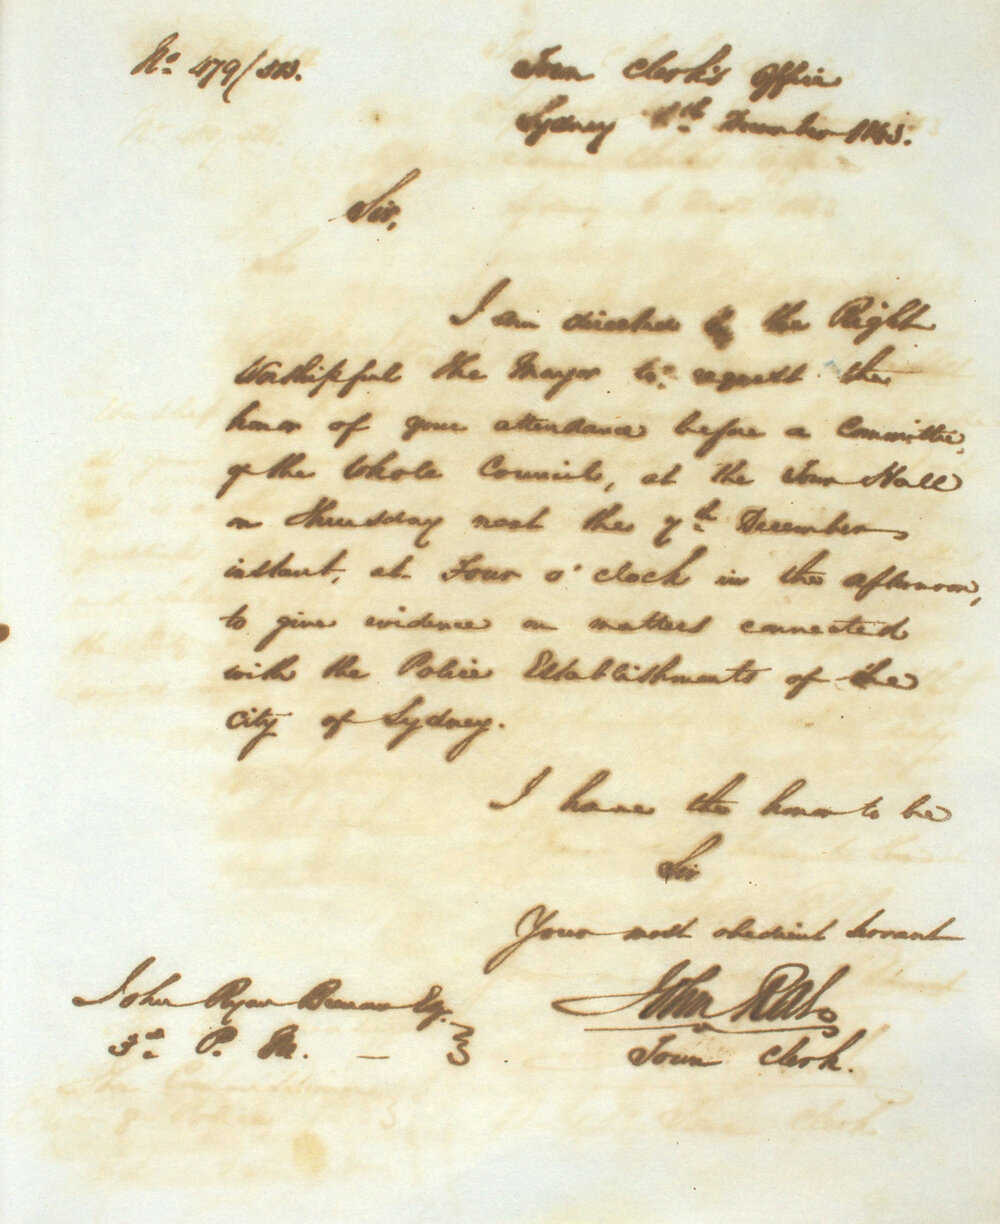 No. 479/313.
Town Clerk's Office
Sydney th December 1843.
Sir,
I am directed by the Right
Worshipful the Mayor to request the
honor of your attendance before a Committee,
of the Whole Council, at the Town Hall
on Thursday next the 7th December
instant, at Four o'clock in the afternoon,
to give evidence on matters connected
with the Police Establishments of the
City of Sydney.
I have the honor to be
Sir
Your most obedient servant
John Rae
Town Clerk.
John Ryan Brenan Esq.
3rd P. M. —